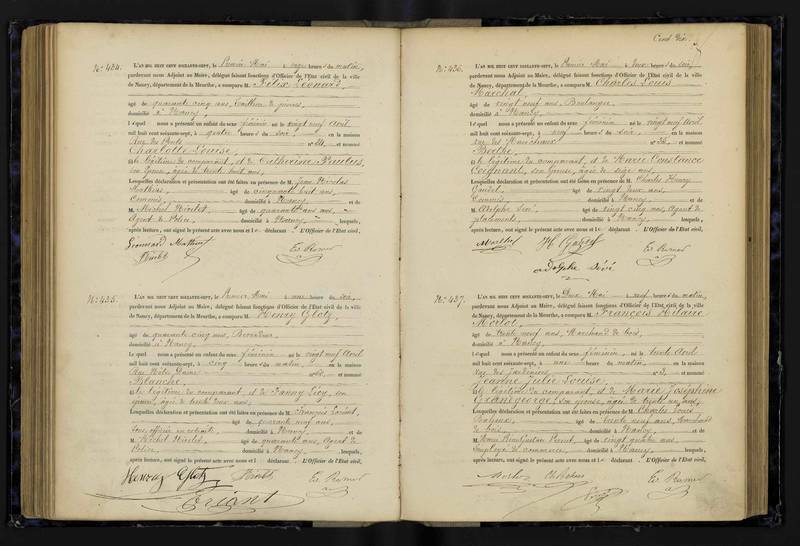 No. 434.
L'AN MIL HUIT CENT SOIXANTE-SEPT, le Premier Mai à onze heures du matin,
pardevant nous Adjoint au Maire, délégué faisant fonctions d'Officier de l'Etat civil de la ville
de Nancy, département de la Meurthe, a comparu M. Félix Léonard,
âgé de quarante cinq ans,
domicilié à Nancy,
lequel nous a présenté un enfant du sexe féminin né le vingt neuf Avril
mil huit cent soixante-sept, à quatre heures du soir, en la maison
Rue et nommé
Charlotte Louise,
fille légitime du comparant, et de Catherine Paulus,
son épouse, âgée de trente huit ans,
Lesquelles déclaration et présentation ont été faites en présence de M. Jean Nicolas
Mathieu, âgé de cinquante huit ans,
Commis, domicilié à Nancy et de
M. Michel Nicolet âgé de quarante ans,
Agent de Police, domicilié à Nancy, lesquels,
après lecture, ont signé le présent acte avec nous et le déclarant. L'Officier de l'Etat civil,
Léonard Mathieu
No. 435.
L'AN MIL HUIT CENT SOIXANTE-SEPT, le Premier Mai à une heure du soir,
pardevant nous Adjoint au Maire, délégué faisant fonctions d'Officier de l'Etat civil de la ville
de Nancy, département de la Meurthe, a comparu M. Henry Glotz,
âgé de quarante cinq ans, Brocanteur,
domicilié à Nancy,
Lequel nous a présenté un enfant du sexe féminin né le vingt neuf Avril
mil huit cent soixante-sept, à cinq heures du matin, en la maison
Rue Notre Dame et nommé
Blanche,
fille légitime du comparant, et de Fanny Lévy, son
épouse, âgée de trente deux ans,
Lesquelles déclaration et présentation ont été faites en présence de M. François Criant,
âgé de quarante neuf ans,
Sous officier en retraite, domicilié à Nancy et de
M. Michel Nicolet âgé de quarante ans, Agent de
Police, domicilié à Nancy, lesquels,
après lecture, ont signé le présent acte avec nous et le déclarant. L'Officier de l'Etat civil,
Henry Glotz
Criant
Cent dix.
No. 436.
L'AN MIL HUIT CENT SOIXANTE-SEPT, le Premier Mai à deux heures du soir,
pardevant nous Adjoint au Maire, délégué faisant fonctions d'Officier de l'Etat civil de la ville
de Nancy, département de la Meurthe, a comparu M. Charles Louis
Marchal,
âgé de vingt neuf ans, Boulanger,
domicilié à Nancy,
lequel nous a présenté un enfant du sexe féminin né le vingt neuf Avril
mil huit cent soixante-sept, à neuf heures du soir, en la maison
rue des Maréchaux et nommé
Berthe,
fille légitime du comparant, et de Marie Constance
son épouse, âgée de ans,
Lesquelles déclaration et présentation ont été faites en présence de M. Charles Henry
âgé de vingt deux ans,
Commis, domicilié à Nancy et de
M. Adolphe Séré, âgé de vingt cinq ans, Agent de
placements, domicilié à Nancy, lesquels,
après lecture, ont signé le présent acte avec nous et le déclarant. L'Officier de l'Etat civil,
Marchal
Adolphe Séré
No. 437.
L'AN MIL HUIT CENT SOIXANTE-SEPT, le Deux Mai à neuf heures du matin,
pardevant nous Adjoint au Maire, délégué faisant fonctions d'Officier de l'Etat civil de la ville
de Nancy, département de la Meurthe, a comparu M. François Hilaire
Morlot,
âgé de trente neuf ans, Marchand de bois,
domicilié à Nancy,
lequel nous a présenté un enfant du sexe féminin, né le trente Avril
mil huit cent soixante-sept, à une heure du matin, en la maison
Rue des Jardiniers et nommé
Jeanne Julie Louise,
fille légitime du comparant, et de Marie Joséphine
Grangeorge, son épouse, âgée de trente un ans,
Lesquelles déclaration et présentation ont été faites en présence de M. Charles Louis
âgé de trente neuf ans, Marchand
de bois, domicilié à Nancy, et de
M. âgé de vingt quatre ans,
Employé de commerce, domicilié à Nancy, lesquels,
après lecture, ont signé le présent acte avec nous et le déclarant. L'Officier de l'Etat civil,
Morlot